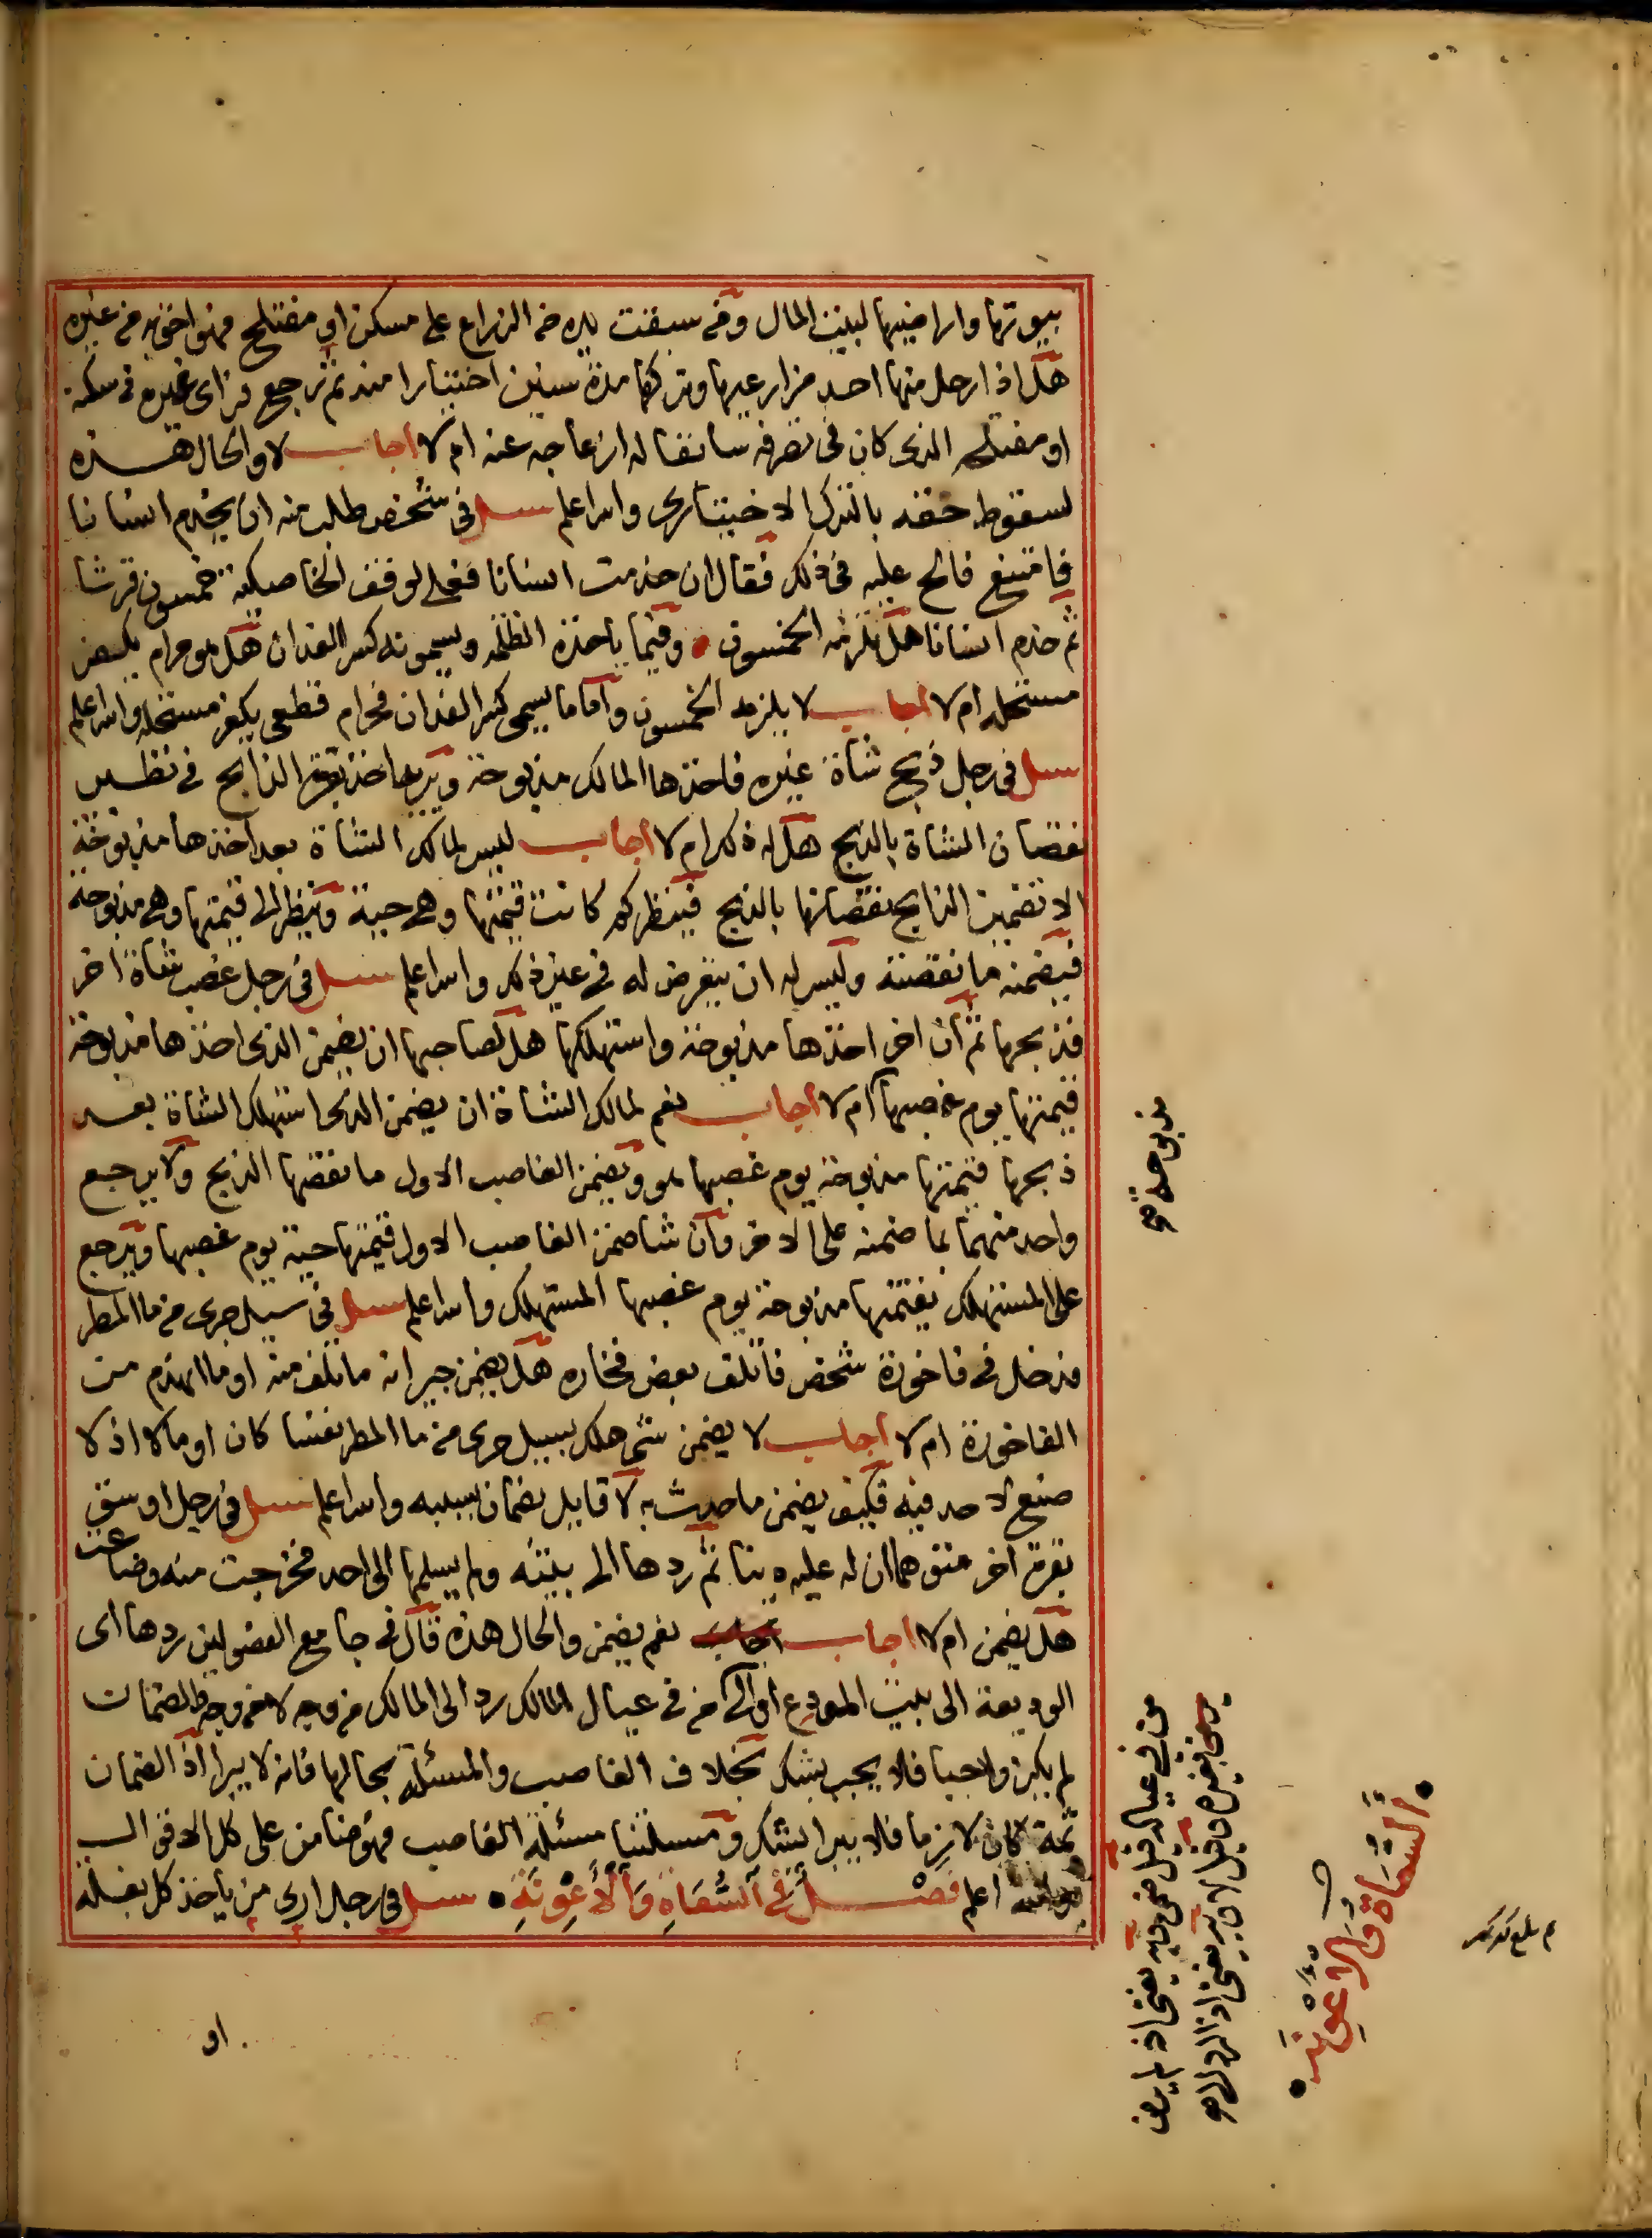 بيوتها واراضيها لبيت المال ومن سبقت يده من الزراع على مسكن او مفتلح فهو احق به من غيره
هل اذا رحل منها احد مزارعيها وتركها مدة سنين اختيارا منه ثم رجع فراى غيره في سكنه
او مفتلحه الذي كان في تصرفه سابقا له ازعاجه عنه ام لا اجاب لا والحال هذه
لسقوط حقه بالترك الاختياري والله اعلم سئل في شخص طلب منه ان يخدم انسانا
فامتنع فالح عليه في ذلك فقال ان خدمت انسانا فعلي لوقف الخاصكية خمسون قرشا
ثم خدم انسانا هل يلزمه الخمسون وفيما ياخذه الظلمه ويسمونه كسر الفدان هل هو حرام يكفر
مستحله ام لا اجاب لا يلزمه الخمسون واما ما يسمى كسر الفدان فحرام قطعي يكفر مستحله والله اعلم
سئل في رجل ذبح شاة غيره فاخذها المالك مذبوحة ويريد اخذ بقرة الذابح في نظير
نقصان الشاة بالذبح هل له ذلك ام لا اجاب ليس لمالك الشاة بعد اخذها مذبوحة
الا تضمين الذابح نقصانها بالذبح فينظر كم كانت قيمتها وهي حية وينظر الى قيمتها وهي مذبوحة
فيضمنه ما نقصته وليس له ان يتعرض له في غير ذلك والله اعلم سئل في رجل غصب شاة اخر
فذبحها ثم ان اخر اخذها مذبوحة واستهلكها هل لصاحبها ان يضمن الذي اخذها مذبوحة
قيمتها يوم غصبها ام لا اجاب نعم لمالك الشاة ان يضمن الذي استهلك الشاة بعد
ذبحها قيمتها مذبوحة يوم غصبها هو ويضمن الغاصب الاول ما نقصها الذبح ولا يرجع
واحد منهما بما ضمنه على الاخر وان شا ضمن الغاصب الاول قيمتها حية يوم غصبها ويرجع
على المستهلك بقيمتها مذبوحة يوم غصبها المستهلك والله اعلم سئل في سيل جرى من ما المطر
فدخل في فاخورة شخص فاتلف بعض فخاره هل يضمن جيرانه ما تلف منه او ما انهدم من
الفاخورة ام لا اجاب لا يضمن شي هلك بسيل جرى من ما المطر نفسا كان او مالا اذ لا
صنع لاحد فيه فكيف يضمن ما حدث به لا قايل بضمان بسببه والله اعلم سئل في رجل اوسق
بقرة اخر متوهما ان له عليه دينا ثم ردها الى بيته ولم يسلمها الى احد فخرجت منه وضاعت
هل يضمن ام لا اجاب اجاب نعم يضمن والحال هذه قال في جامع الفصولين ردها اى
الوديعة الى بيت المودع او الى من في عيال المالك رد الى المالك من وجه لا من وجه والضمان
لم يكن واجبا فلا يجب بشك بخلاف الغاصب والمسئلة بحالها فانه لا يبرا اذ الضمان
ثمة كان لازما فلا يبرا بشك ومسئلتنا مسئلة الغاصب فهو ضامن على كل الاقوال
والله اعلم فصل في السعاة والاعونة سئل في رجل ارى من ياخذ كل بغلة
او
مذبوحة صح
السعاة والاعونة